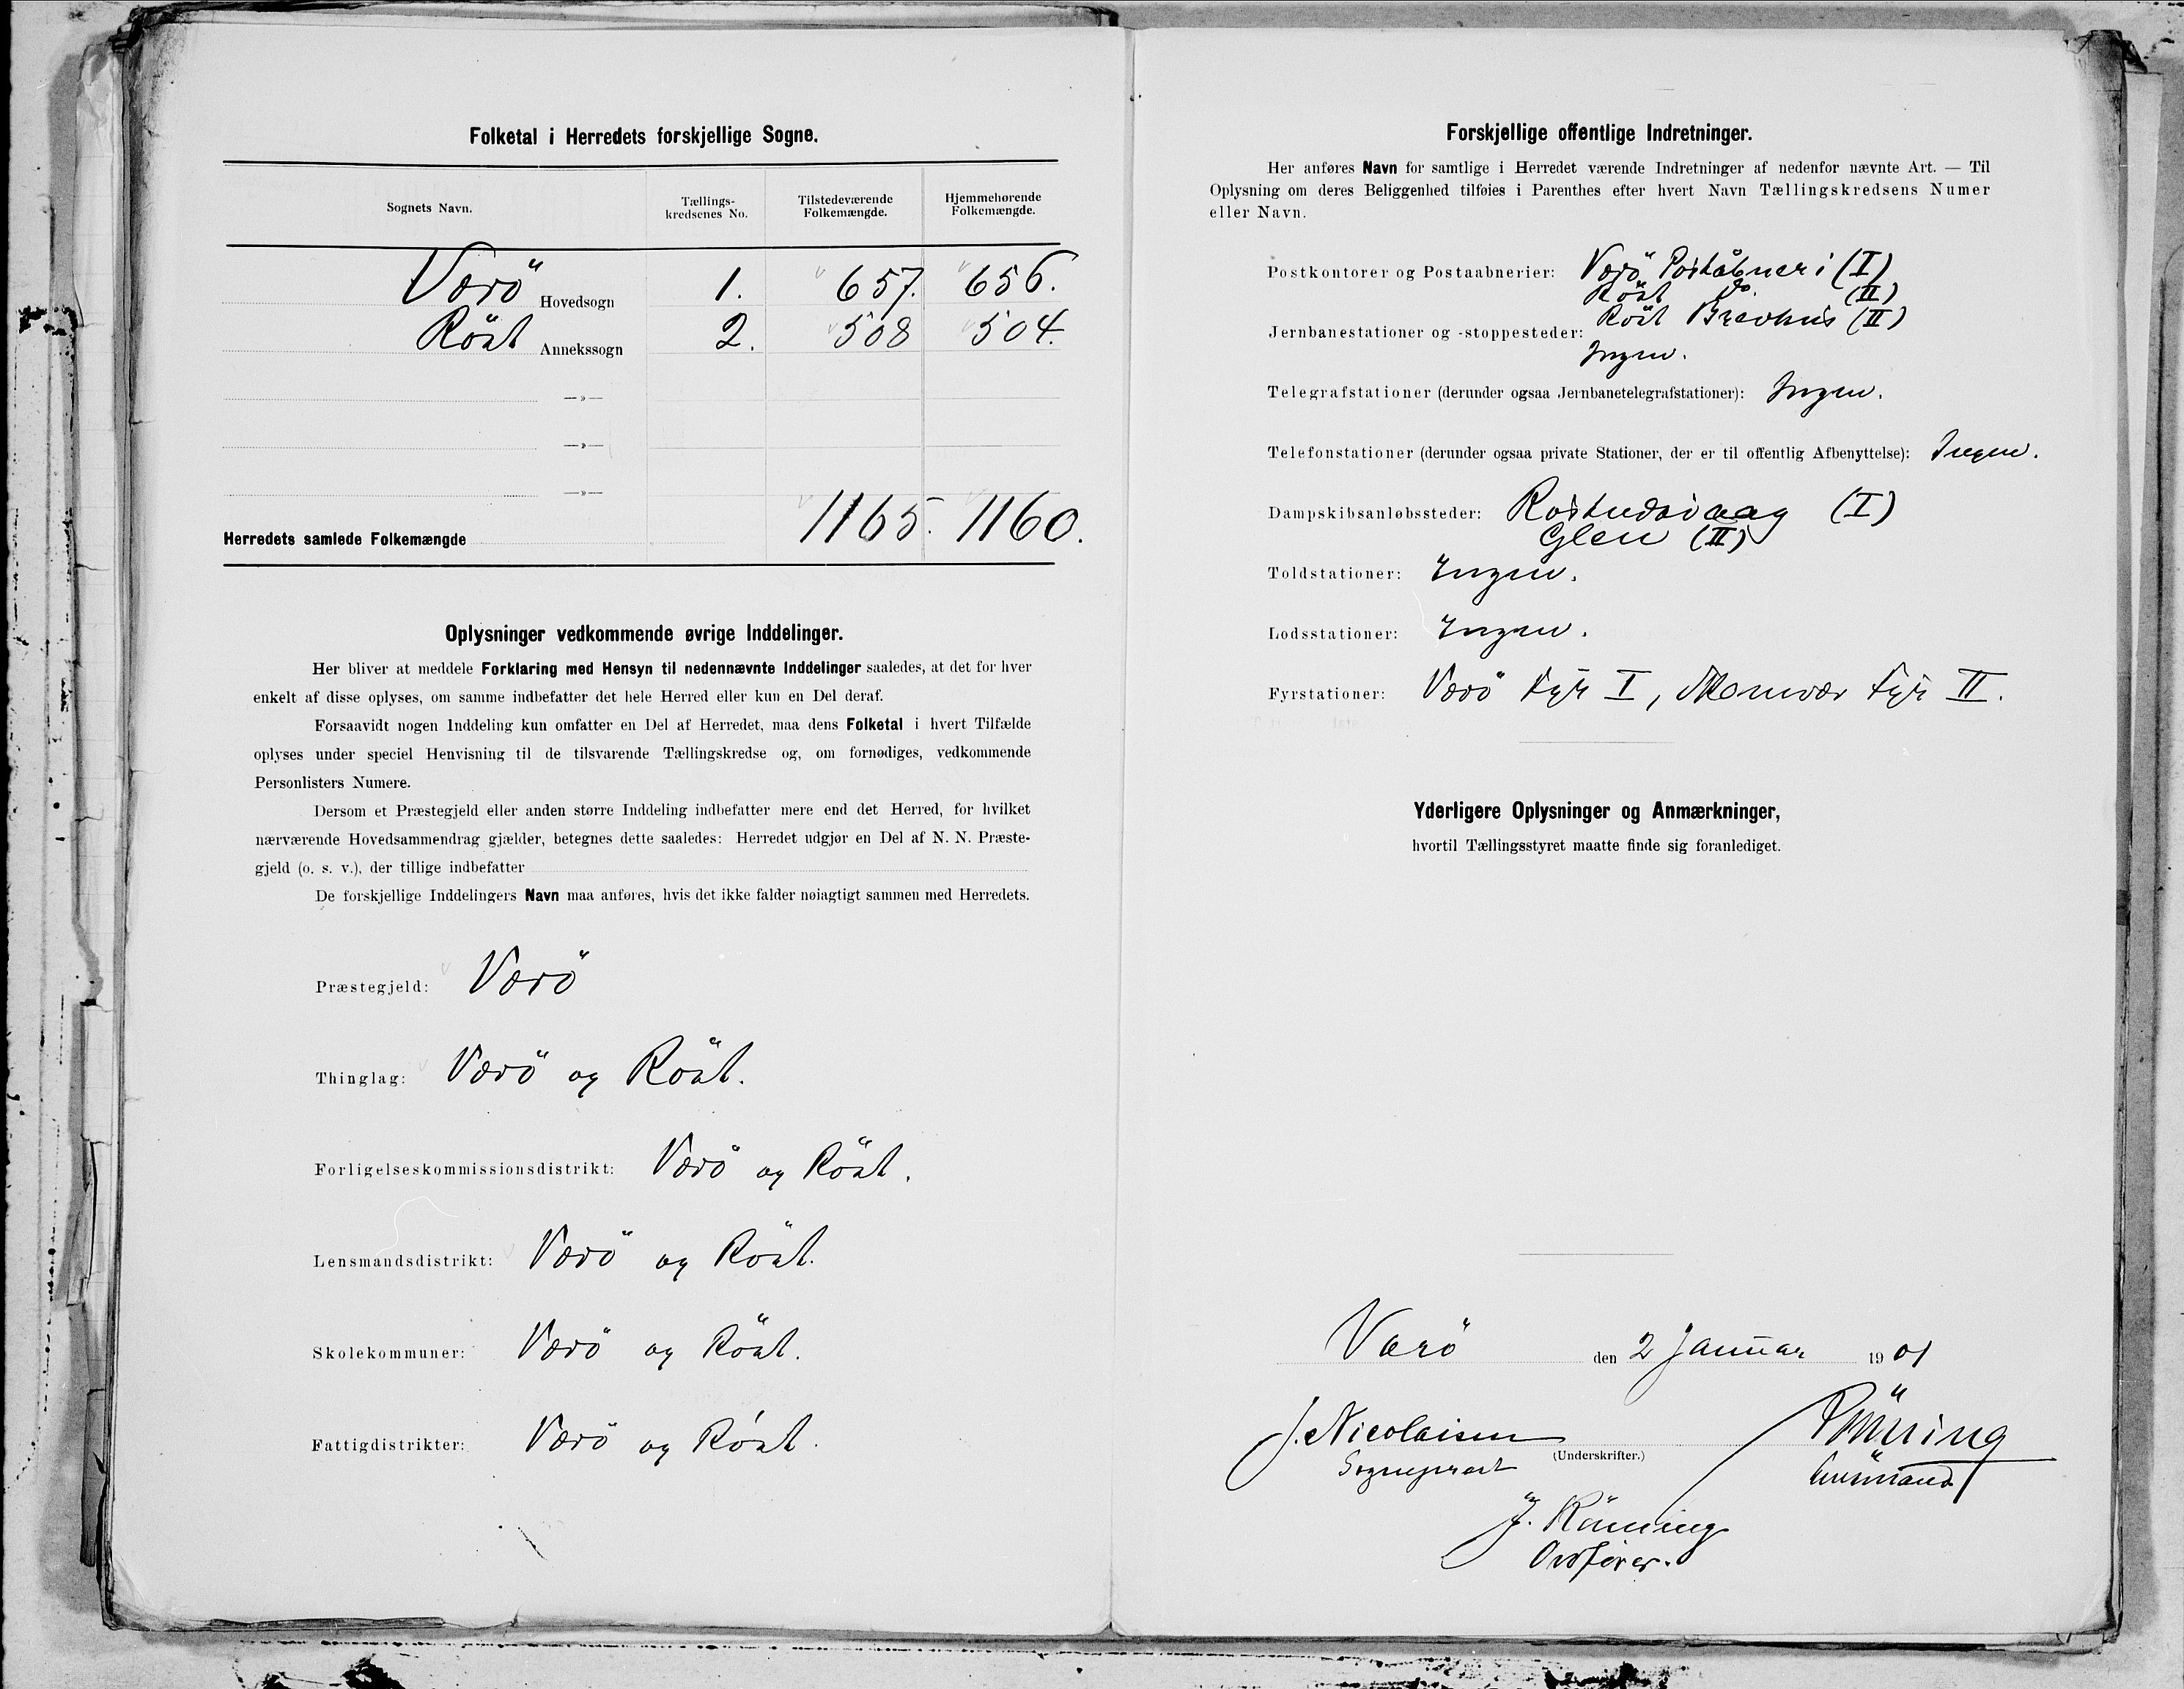 Folketal i Herredets forskjellige Sogne.
Sognets Navn.
Tællings-
kredsenes No.
Tilstedeværende
Folkemængde.
Hjemmehørende
Folkemængde.
Værö Hovedsogn 1. 657. 656.
Röst Annekssogn 2. 508 504.
—»—
—»—
—»—
Herredets samlede Folkemængde 1165. 1160.
Oplysninger vedkommende øvrige Inddelinger.
Her bliver at meddele Forklaring med Hensyn til nedennævnte Inddelinger saaledes, at det for hver
enkelt af disse oplyses, om samme indbefatter det hele Herred eller kun en Del deraf.
Forsaavidt nogen Inddeling kun omfatter en Del af Herredet, maa dens Folketal i hvert Tilfælde
oplyses under speciel Henvisning til de tilsvarende Tællingskredse og, om fornødiges, vedkommende
Personlisters Numere.
Dersom et Præstegjeld eller anden større Inddeling indbefatter mere end det Herred, for hvilket
nærværende Hovedsammendrag gjælder, betegnes dette saaledes: Herredet udgjør en Del af N. N. Præste-
gjeld (o. s. v.), der tillige indbefatter
De forskjellige Inddelingers Navn maa anføres, hvis det ikke falder nøiagtigt sammen med Herredets.
Præstegjeld: Værö
Thinglag: Værö og Röst.
Forligelseskommissionsdistrikt: Værö og Röst.
Lensmandsdistrikt: Værö og Röst.
Skolekommuner: Værö og Röst.
Fattigdistrikter: Værö og Röst.
Forskjellige offentlige Indretninger.
Her anføres Navn for samtlige i Herredet værende Indretninger af nedenfor nævnte Art. — Til
Oplysning om deres Beliggenhed tilføies i Parenthes efter hvert Navn Tællingskredsens Numer
eller Navn.
Postkontorer og Postaabnerier: Værö Poståbneri (I)
Röst do. (II)
Röst Brevhus (II)
Jernbanestationer og -stoppesteder:
Ingen.
Telegrafstationer (derunder ogsaa Jernbanetelegrafstationer): Ingen.
Telefonstationer (derunder ogsaa private Stationer, der er til offentlig Afbenyttelse): Ingen.
Dampskibsanløbssteder: (I)
Glea (II)
Toldstationer: Ingen.
Lodsstationer: Ingen.
Fyrstationer: Værö Fyr I, Fyr II.
Yderligere Oplysninger og Anmærkninger,
hvortil Tællingsstyret maatte finde sig foranlediget.
Værö den 2 Januar 1901
J. Nicolaisen
Sogneprest
(Underskrifter.)
Lensmand
J. Rönning
Ordförer.